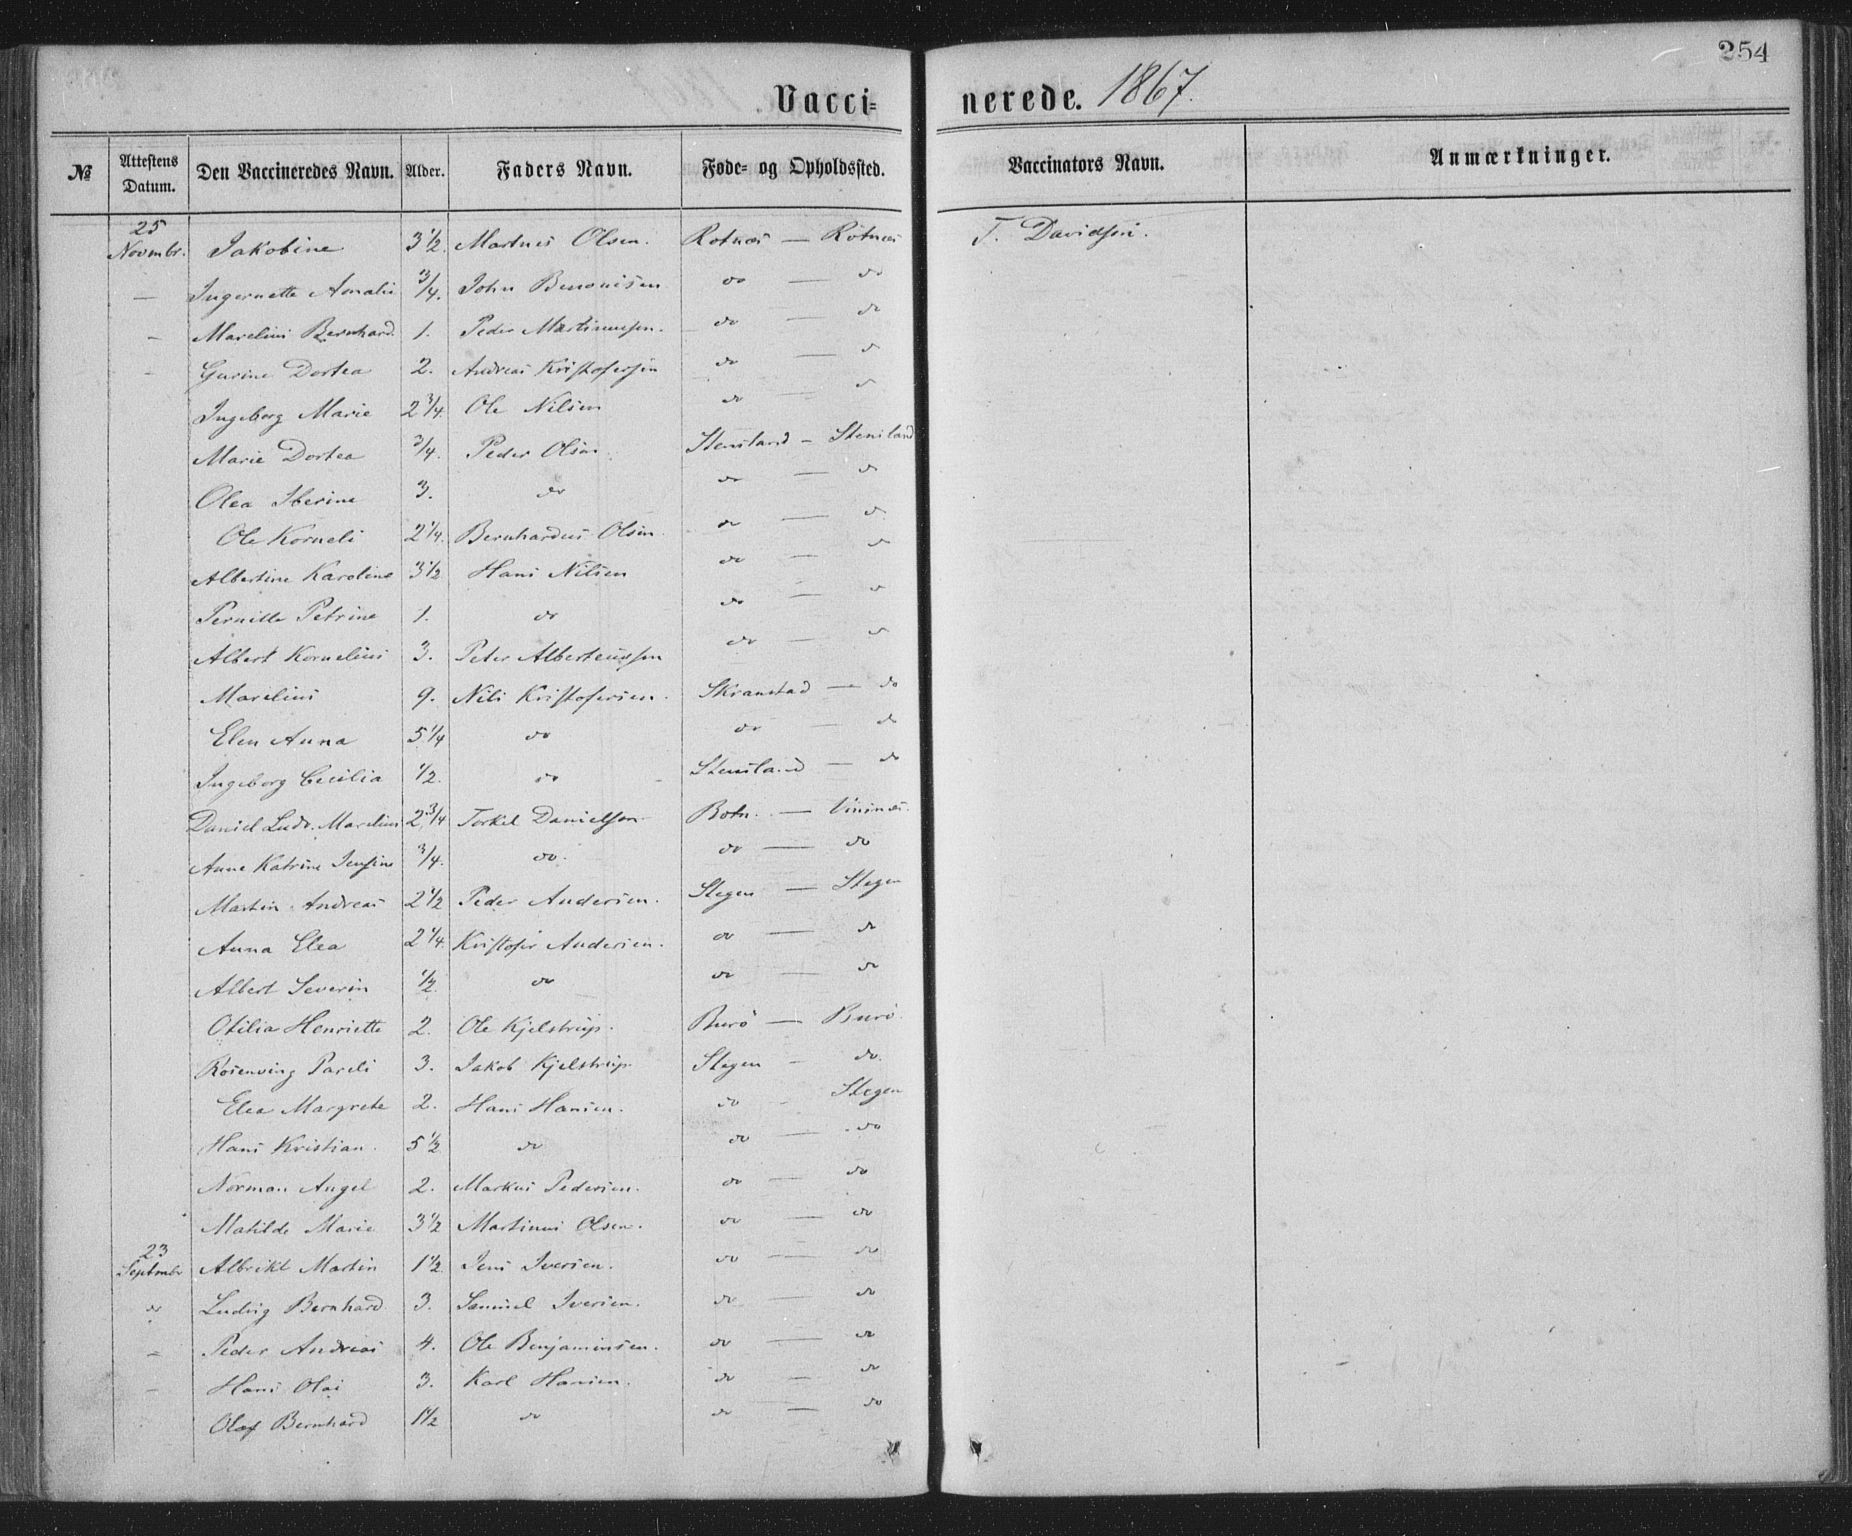 254
Vacci= nerede. 1867.
№ Attestens Datum. Den Vaccineredes Navn. Alder. Faders Navn. Føde= og Opholdssted. Vaccinators Navn. Anmærkninger.
25 Novembr. Jakobine 3 1/2 Martnus Olsen. Rotnæs — Rotnæs T. Davidsen.
— Ingernette Amalie 3/4. John Benonisen do — do
— Marelius Bernhard. 1. Peder Martinussen. do — do
— Gurine Dortea 2. Andreas Kristofersen do — do
Ingeborg Marie 2 3/4. Ole Nilsen do — do
Marie Dortea 3/4. Peder Olsen Stensland — Stensland
Olea Iberine 3. do do — do
Ole Korneli 2 1/4. Bernhardus Olsen do — do
Albertine Karoline 3 1/2 Hans Nilsen do — do
Pernille Petrine 1. do do — do
Albert Kornelius 3. Peter Alberteussen do — do
Marelius 9. Nils Kristofersen. Skranstad — do
Elen Anna 5 1/4 do do — do
Ingeborg Cecilia 1/2. do Stensland — do
Daniel Ludv. Marelius 2 3/4 Torkel Danielsen Botn. — Vininæs.
Anne Katrine Jensine 3/4. do. do — do
Martin Andreas 2 1/2 Peder Andersen. Stegen — Stegen
Anna Elea 2 1/4. Kristofer Andersen. do — do
Albert Severin 1/2. do do — do
Otilia Henriette 2. Ole Kjelstrup. Burø — Burø.
Rosenving Pareli 3. Jakob Kjelstrup. Stegen — do.
Elea Margrete 2. Hans Hansen. do — Stegen
Hans Kristian. 5 1/2 do do — do
Norman Angel 2. Markus Pedersen. do — do
Matilde Marie 3 1/2 Martinus Olsen. do — do
23 Septembr Albrikt Martin 1 1/2. Jens Iversen. do — do
do Ludvig Bernhard 3. Samuel Iversen. do — do
— Peder Andreas 4. Ole Benjaminsen. do — do
— Hans Olai 3. Karl Hansen. do — do
Olaf Bernhard 1 1/2 do do — do